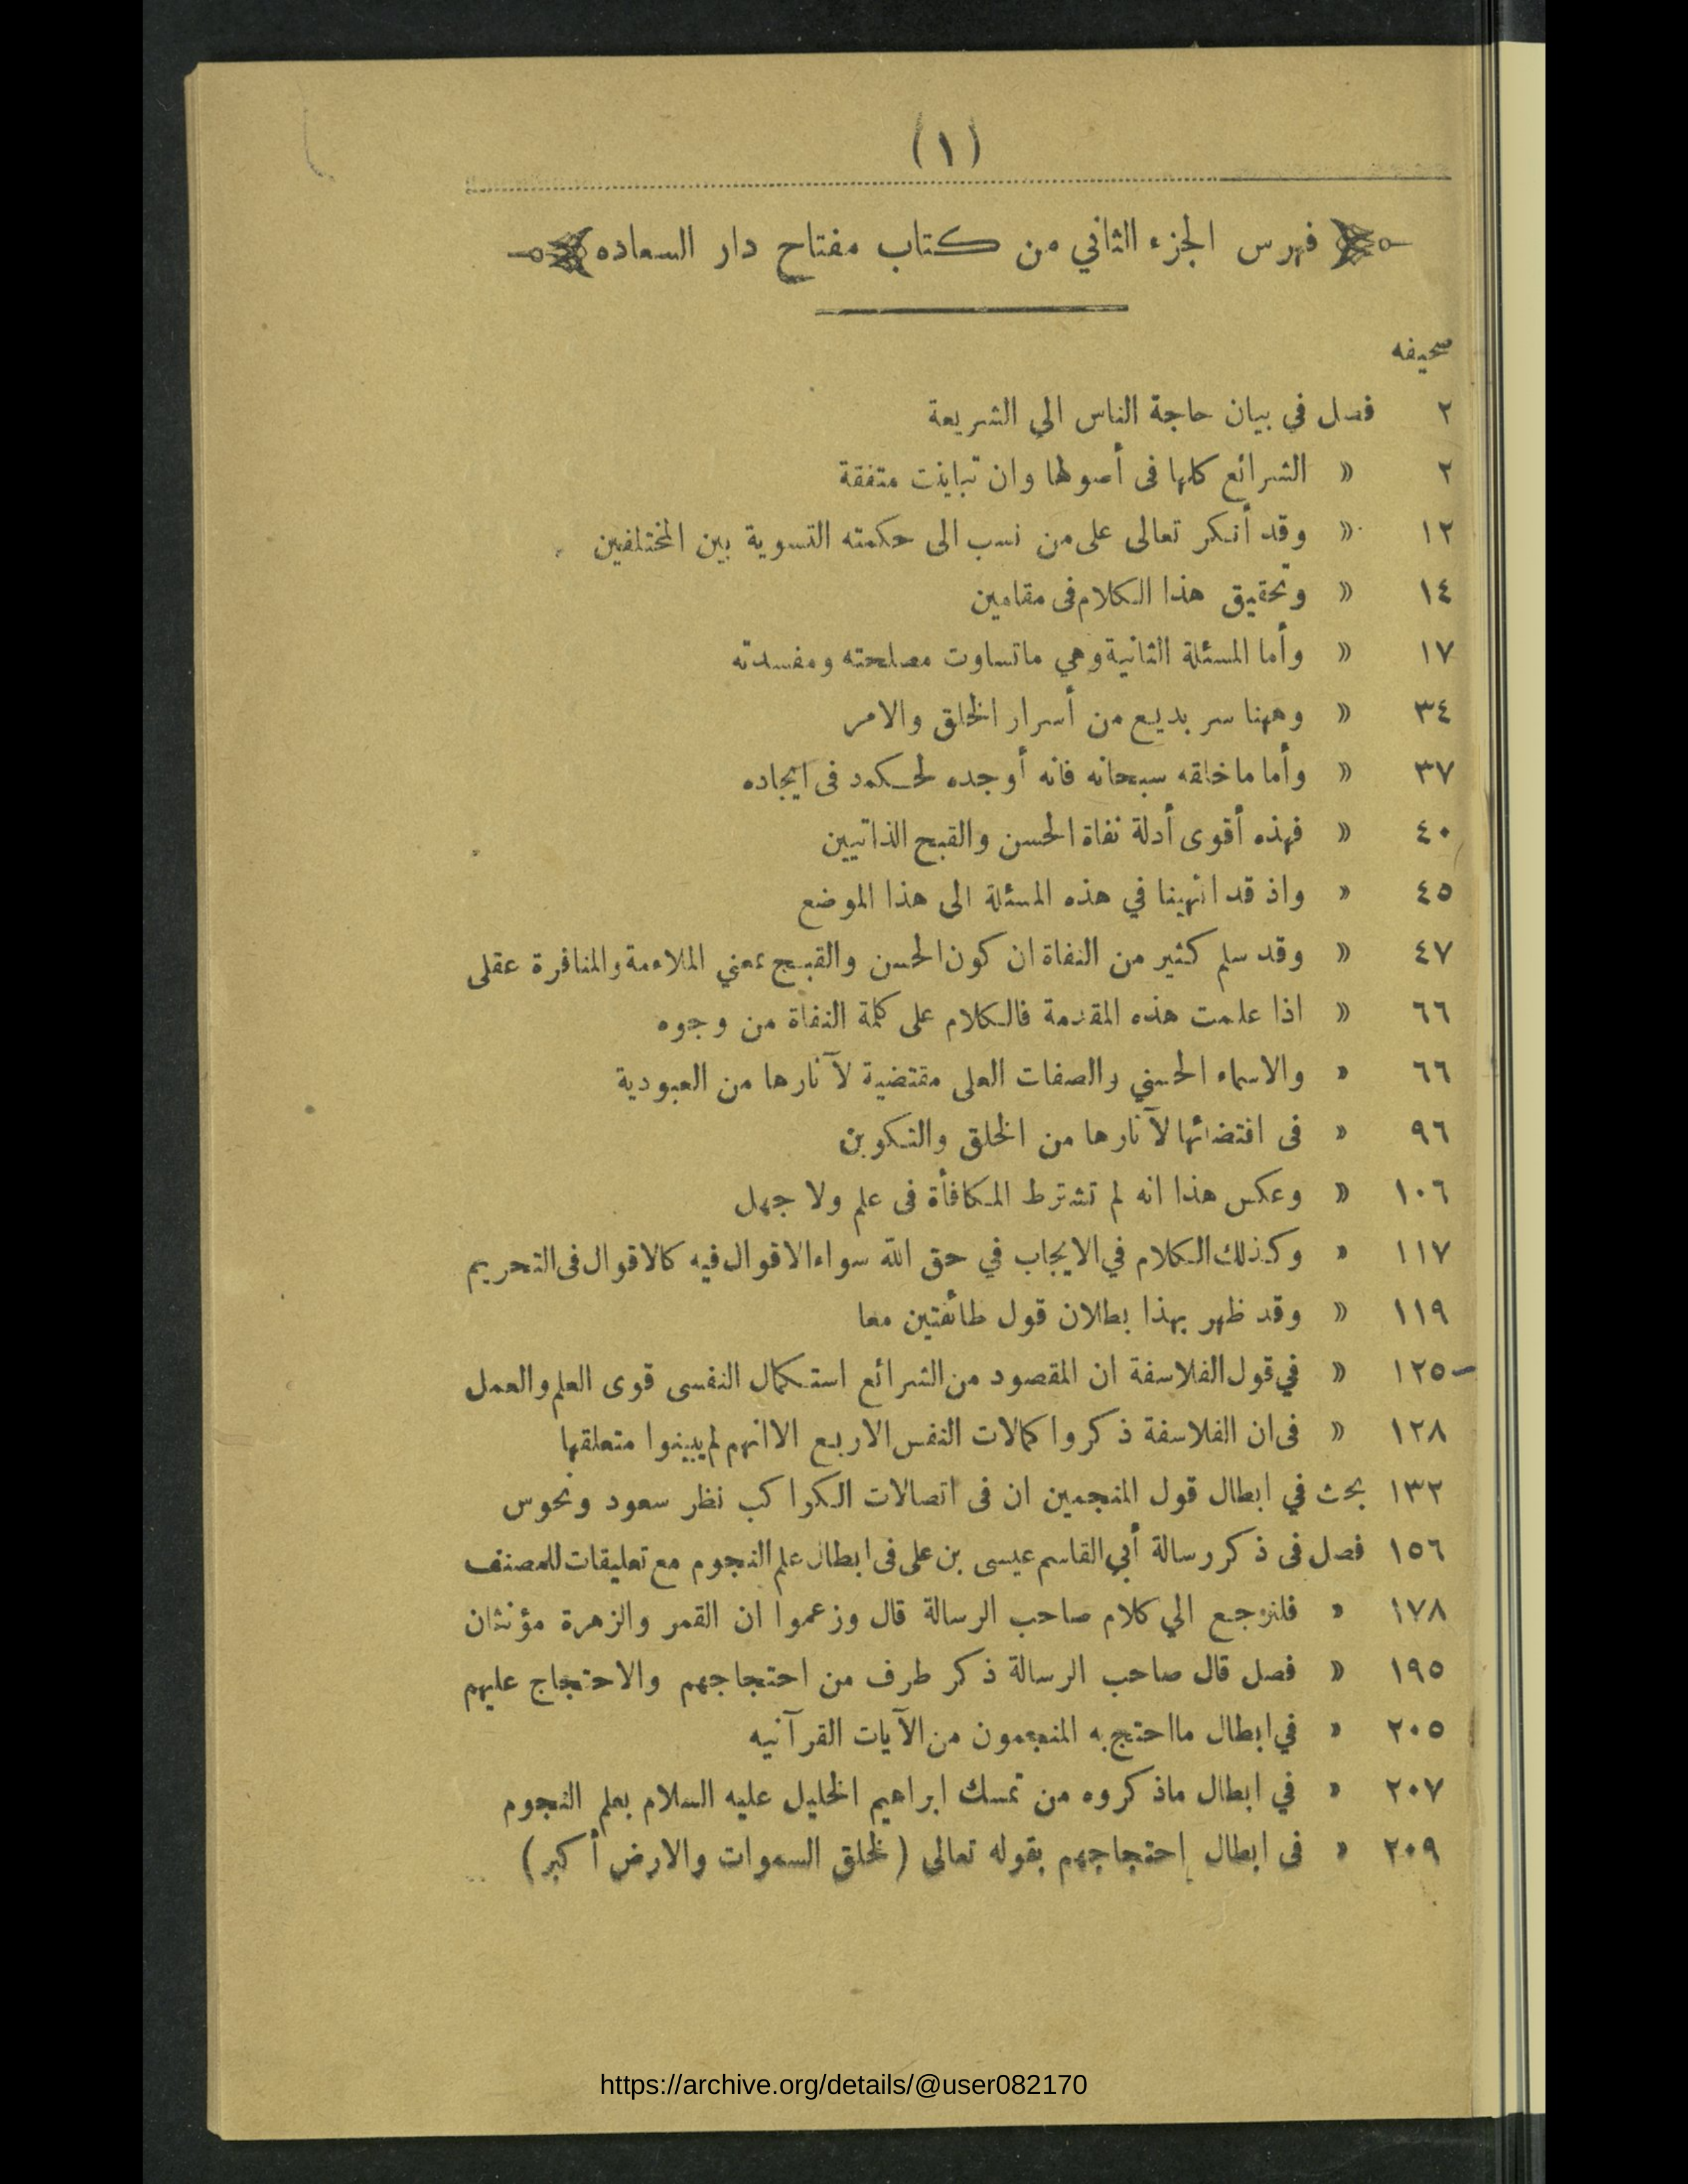 (١)
فهرس الجزء الثاني من كتاب مفتاح دار السعاده
صحيفه
٢ فصل في بيان حاجة الناس الي الشريعة
٢ » الشرائع كلها فى أصولها وان تباينت متفقة
١٢ » وقد أنكر تعالى على من نسب الى حكمته التسوية بين المختلفين
١٤ » وتحقيق هذا الكلام فى مقامين
١٧ » وأما المسئلة الثانية وهي ماتساوت مصلحته ومفسدته
٣٤ » وههنا سر بديع من أسرار الخلق والامر
٣٧ » وأما ماخلقه سبحانه فانه أوجده لحكمه فى ايجاده
٤٠ » فهذه أقوى أدلة نفاة الحسن والقبح الذاتيين
٤٥ » واذ قد انتهينا في هذه المسئلة الى هذا الموضع
٤٧ » وقد سلم كثير من النفاة ان كون الحسن والقبيح بمعني الملاءمة والمنافرة عقلى
٦٦ » اذا علمت هذه المقدمة فالكلام على كلمة النفاة من وجوه
٦٦ » والاسماء الحسني والصفات العلى مقتضية لآثارها من العبودية
٩٦ » فى اقتضائها لآثارها من الخلق والتكوين
١٠٦ » وعكس هذا انه لم تشترط المكافأة فى علم ولا جهل
١١٧ » وكذلك الكلام في الايجاب في حق الله سواء الاقوال فيه كالاقوال فى التحريم
١١٩ » وقد ظهر بهذا بطلان قول طائفتين معا
١٢٥ » في قول الفلاسفة ان المقصود من الشرائع استكمال النفسى قوى العلم والعمل
١٢٨ » فى ان الفلاسفة ذكروا كمالات النفس الاربع الا انهم لم يبينوا متعلقها
١٣٢ بحث في ابطال قول المنجمين ان فى اتصالات الكواكب نظر سعود ونحوس
١٥٦ فصل فى ذكر رسالة أبي القاسم عيسى بن على فى ابطال علم النجوم مع تعليقات للمصنف
١٧٨ » فلنرجع الي كلام صاحب الرسالة قال وزعموا ان القمر والزهرة مؤنثان
١٩٥ » فصل قال صاحب الرسالة ذكر طرف من احتجاجهم والاحتجاج عليهم
٢٠٥ » في ابطال مااحتج به المنجمون من الآيات القرآنيه
٢٠٧ » في ابطال ماذكروه من تمسك ابراهيم الخليل عليه السلام بعلم النجوم
٢٠٩ » فى ابطال إحتجاجهم بقوله تعالى (لخلق السموات والارض أكبر)
https://archive.org/details/@user082170